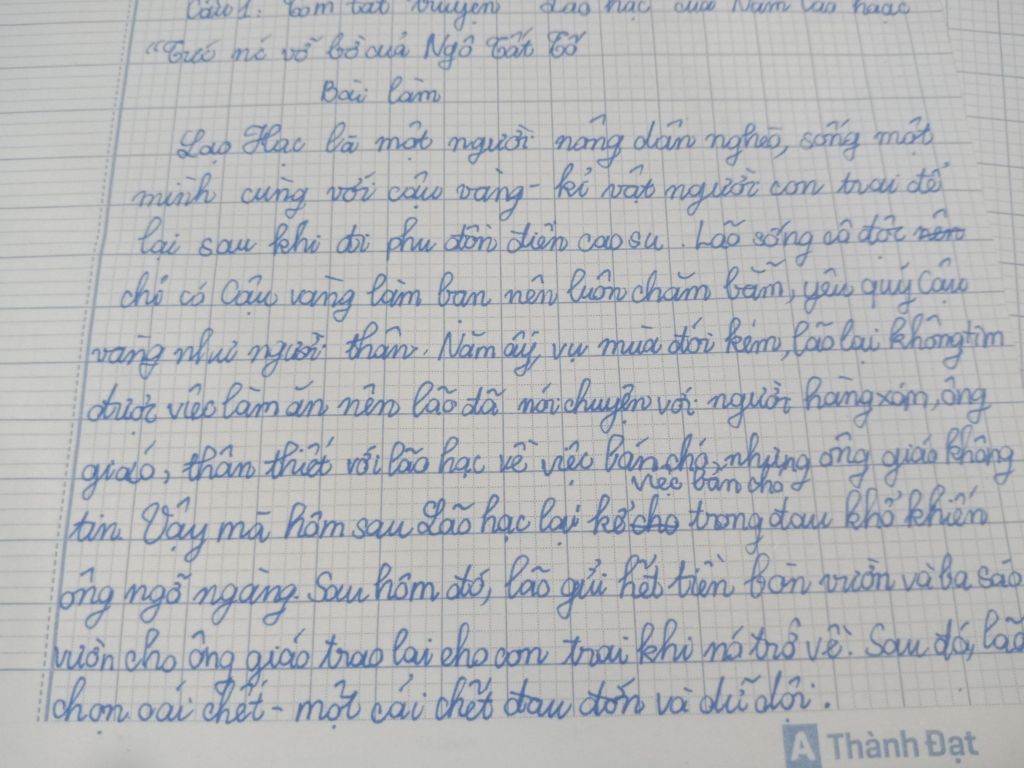 Câu 1: Tóm tắt truyện Lão hạc của Nam Cao hoặc
"Tức nc vỡ bờ củả Ngô Tất Tố
Bài làm
Lão Hạc là một người nông dân nghèo, sống một
mình cùng với cậu vàng - kỉ vật người con trai để
lại sau khi đi phu đồn điền cao su. Lão sống cô độc nên
chỉ có Cậu vàng làm bạn nên luôn chăm bẵm, yêu quý Cậu
vàng như người thân. Năm ấy, vụ mùa đói kém, lão lại không tìm
được việc làm ăn nên lão đã nói chuyện với người hàng xóm, ông
giáo, thân thiết với lão hạc về việc bán chó, nhưng ông giáo không
việc bán chó
tin. Vậy mà hôm sau Lão hạc lại kể cho trong đau khổ khiến
ông ngỡ ngàng. Sau hôm đó, lão gửi hết tiền bán vườn và ba sào
vườn cho ông giáo trao lại cho con trai khi nó trở về. Sau đó, lão
chọn cái chết - một cái chết đau đớn và dữ dội.
Thành Đạt